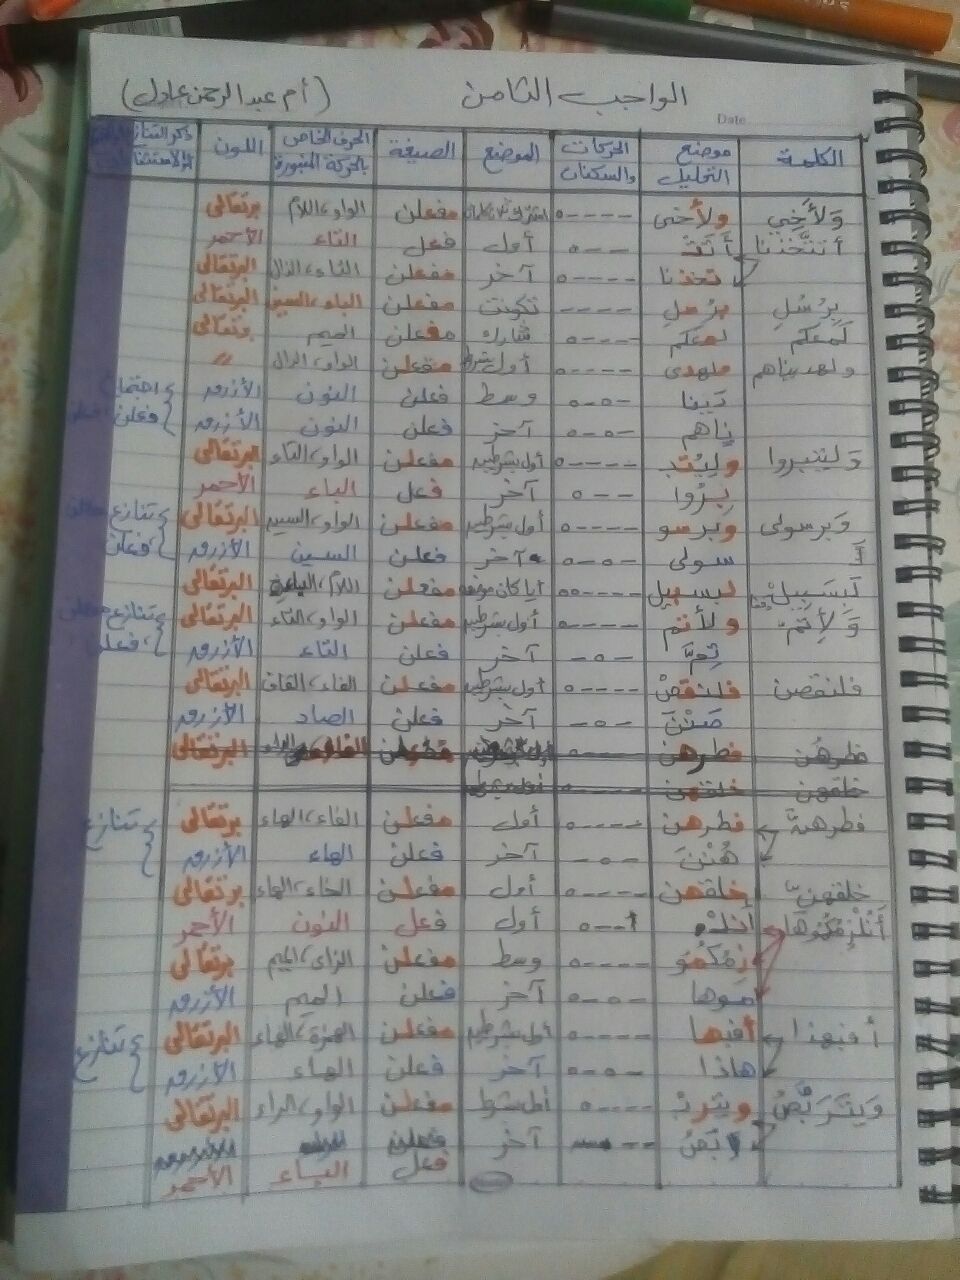 الواجب الثامن (أم عبد الرحمن عادل)
Date
الكلمة موضع التحليل الحركات والسكنات الموضع الصيغة الحرف الخاص بالحركة المبتورة اللون ذكر التنازع
وَلِأَخِي ولأخى ----ه مفعلن الواو، اللام برتقالى
أتتخذنا أَتَتْ ---ه أول فعل التاء الأحمر
تخذنا ----ه آخر مفعلن التاء، الذال البرتقالى
بِرُسُلٍ برُسلٍ ---- تكونت مفعلن الباء، السين البرتقالى
لَمَعَكم لمعكم ----ه مفعلن الميم برتقالى
ولهديناهم ولهدى ----ه أول مفعلن الواو، الدال 〃
دَينا -ه-ه وسط فعلن النون الأزرق
ناهم -ه-ه آخر فعلن النون الأزرق
وَليتبروا وليُتَب ----ه أول بشرطيه مفعلن الواو، التاء البرتقالى
بِرُوا ---ه آخر فعل الباء الأحمر
وَبرسولى وبرسو ----ه أول بشرطيه مفعلن الواو، السين البرتقالى تنازع مفعلن
سولى -ه-ه آخر فعلن السين الأزرق فعلن
لَبِسَبِيلْ لبسبيل ----ه ه مفعلن اللام، الباء البرتقالى
وَلِأُتِمَّ ولأتم ----ه أول بشرطيه مفعلن الواو، التاء البرتقالى تنازع مفعلن
تِمَّ -ه- آخر فعلن التاء الأزرق ، فعلن
فلنقصن فلنقصْ ----ه أول بشرطيه مفعلن الفاء، القاف البرتقالى
صَنْنَ -ه- آخر فعلن الصاد الأزرق
فطرهُن فطرهن ----ه البرتقالى
خلقهن خلقهن ----ه
فطرهنَّ فطرهن ----ه أول مفعلن الفاء، الهاء برتقالى تنازع
هُنْنَ -ه- آخر فعلن الهاء الأزرق
خلقهنّ خلقهن ----ه أول مفعلن الخاء، الهاء برتقالى
أَنُلْزِمُكُمُوهَا أنلْ ---ه أول فعل النون الأحمر
زِمُكمُو ----ه وسط مفعلن الزاى، الميم برتقالى
موها -ه-ه آخر فعلن الميم الأزرق
أفبهذا أفبها ----ه أول بشرطيه مفعلن الهمزة، الهاء البرتقالى تنازع
هاذا -ه-ه آخر فعلن الهاء الأزرق
وَيَتَرَبَّصُ ويتربْ ----ه مفعلن الواو، الراء البرتقالى
بَصُ -- آخر فعلن
فعل الباء الأحمر